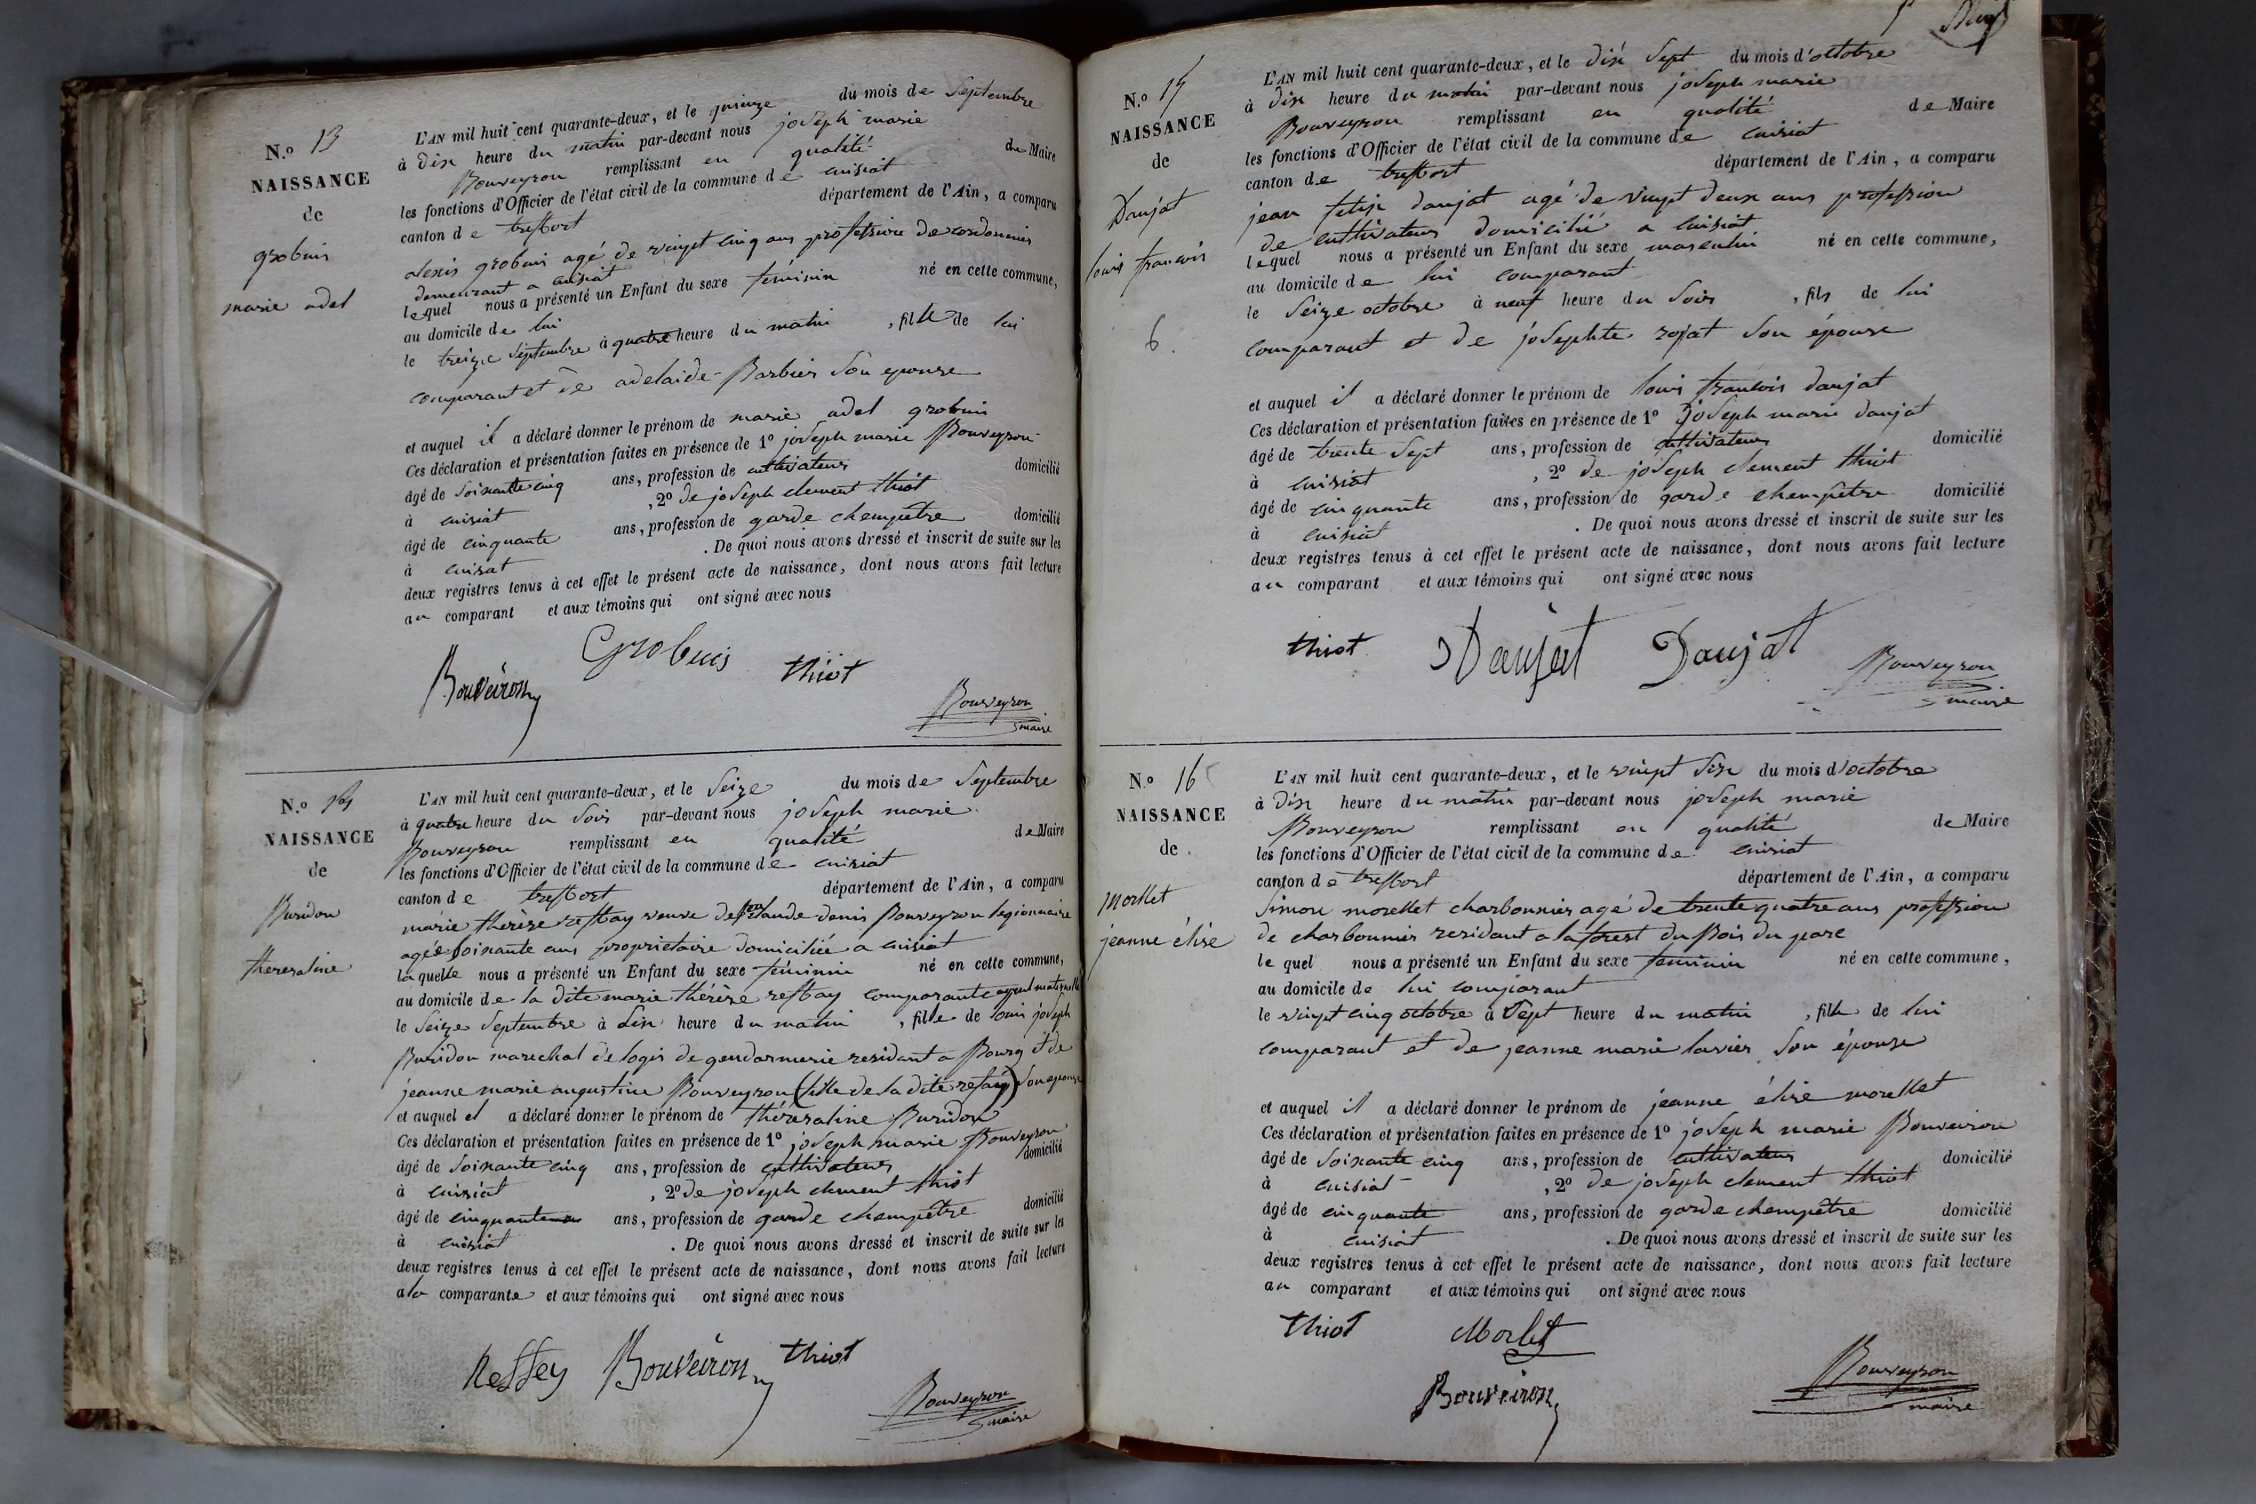 N.o 13
NAISSANCE
de
grobuis
marie adel
L'AN mil huit cent quarante-deux, et le quinze du mois de Septembre
à dix heure du matin par-devant nous joseph marie
Bouveyron remplissant en qualité de Maire
les fonctions d'Officier de l'état civil de la commune de cuisiat
canton de treffort département de l'Ain, a comparu
alexis grobuis agé de vingt cinq ans profession de cordonnier
demeurant a cuisiat
lequel nous a présenté un Enfant du sexe féminin né en cette commune,
au domicile de lui
le treize septembre à quatre heure du matin , fille de lui
comparant et de adelaide Barbier son epouse
et auquel il a déclaré donner le prénom de marie adel grobuis
Ces déclaration et présentation faites en présence de 1o joseph marie Bouveyron
âgé de soixante cinq ans, profession de cultivateur domicilié
à cuisiat , 2o de joseph clement thiot
âgé de cinquante ans, profession de garde champêtre domicilié
à cuisat . De quoi nous avons dressé et inscrit de suite sur les
deux registres tenus à cet effet le présent acte de naissance, dont nous avons fait lecture
au comparant et aux témoins qui ont signé avec nous
Bouveiron Grobuis thiot
Bouveyron
maire
N.o 14
NAISSANCE
de
Buridon
theresaline
L'AN mil huit cent quarante-deux, et le Seize du mois de Septembre
à quatre heure du Soir par-devant nous joseph marie
Bouveyron remplissant en qualité de Maire
les fonctions d'Officier de l'état civil de la commune de cuisiat
canton de treffort département de l'Ain, a comparu
marie thérèse reffay veuve de claude denis Bouveyron legionnaire
agée soixante ans propriétaire domiciliée a cuisiat
laquelle nous a présenté un Enfant du sexe féminin né en cette commune,
au domicile de la dite marie thérèse reffay comparante ayeul maternelle
le Seize Septembre à dix heure du matin , fille de louis joseph
Buridon marechal de logis de gendarmerie residant a Bourg et de
jeanne marie augustine Bouveyron (fille de la dite refay) son epouse
et auquel el a déclaré donner le prénom de théresaline Buridon
Ces déclaration et présentation faites en présence de 1o joseph marie Bouveyron
âgé de soixante cinq ans, profession de cultivateur domicilié
à cuisiat , 2o de joseph clement thiot
âgé de cinquante ans, profession de garde champêtre domicilié
à cuisiat . De quoi nous avons dressé et inscrit de suite sur les
deux registres tenus à cet effet le présent acte de naissance, dont nous avons fait lecture
a la comparante et aux témoins qui ont signé avec nous
Reffey Bouveiron thiot
Bouveyron
maire
N.o 15
NAISSANCE
de
Daujat
louis francois
6.
L'AN mil huit cent quarante-deux, et le dix sept du mois d'octobre
à dix heure du matin par-devant nous joseph marie
Bouveyron remplissant en qualité de Maire
les fonctions d'Officier de l'état civil de la commune de cuisiat
canton de treffort département de l'Ain, a comparu
jean felix daujat agé de vingt deux ans profession
de cultivateur domicilié a cuisiat
lequel nous a présenté un Enfant du sexe masculin né en cette commune,
au domicile de lui comparant
le Seize octobre à neuf heure du Soir , fils de lui
comparant et de josephte rojat son épouse
et auquel il a déclaré donner le prénom de louis francois daujat
Ces déclaration et présentation faites en présence de 1o joseph marie daujat
âgé de trente Sept ans, profession de cultivateur domicilié
à cuisiat , 2o de joseph clement thiot
âgé de cinquante ans, profession de garde champêtre domicilié
à cuisiat . De quoi nous avons dressé et inscrit de suite sur les
deux registres tenus à cet effet le présent acte de naissance, dont nous avons fait lecture
au comparant et aux témoins qui ont signé avec nous
thiot Daujat Daujat
Bouveyron
maire
N.o 16
NAISSANCE
de
morllet
jeanne élise
L'AN mil huit cent quarante-deux, et le vingt six du mois d'octobre
à dix heure du matin par-devant nous joseph marie
Bouveyron remplissant en qualité de Maire
les fonctions d'Officier de l'état civil de la commune de cuisiat
canton de treffort département de l'Ain, a comparu
Simon morellet charbonnier agé de trente quatre ans profession
de charbonnier residant a la forest du Bois du parc
lequel nous a présenté un Enfant du sexe feminin né en cette commune,
au domicile de lui comparant
le vingt cinq octobre à Sept heure du matin , fille de lui
comparant et de jeanne marie lavier son épouse
et auquel il a déclaré donner le prénom de jeanne élise morellet
Ces déclaration et présentation faites en présence de 1o joseph marie Bouveiron
âgé de soixante cinq ans, profession de cultivateur domicilié
à cuisiat , 2o de joseph clement thiot
âgé de cinquante ans, profession de garde champêtre domicilié
à cuisiat . De quoi nous avons dressé et inscrit de suite sur les
deux registres tenus à cet effet le présent acte de naissance, dont nous avons fait lecture
au comparant et aux témoins qui ont signé avec nous
thiot Morlet
Bouveiron
Bouveyron
maire